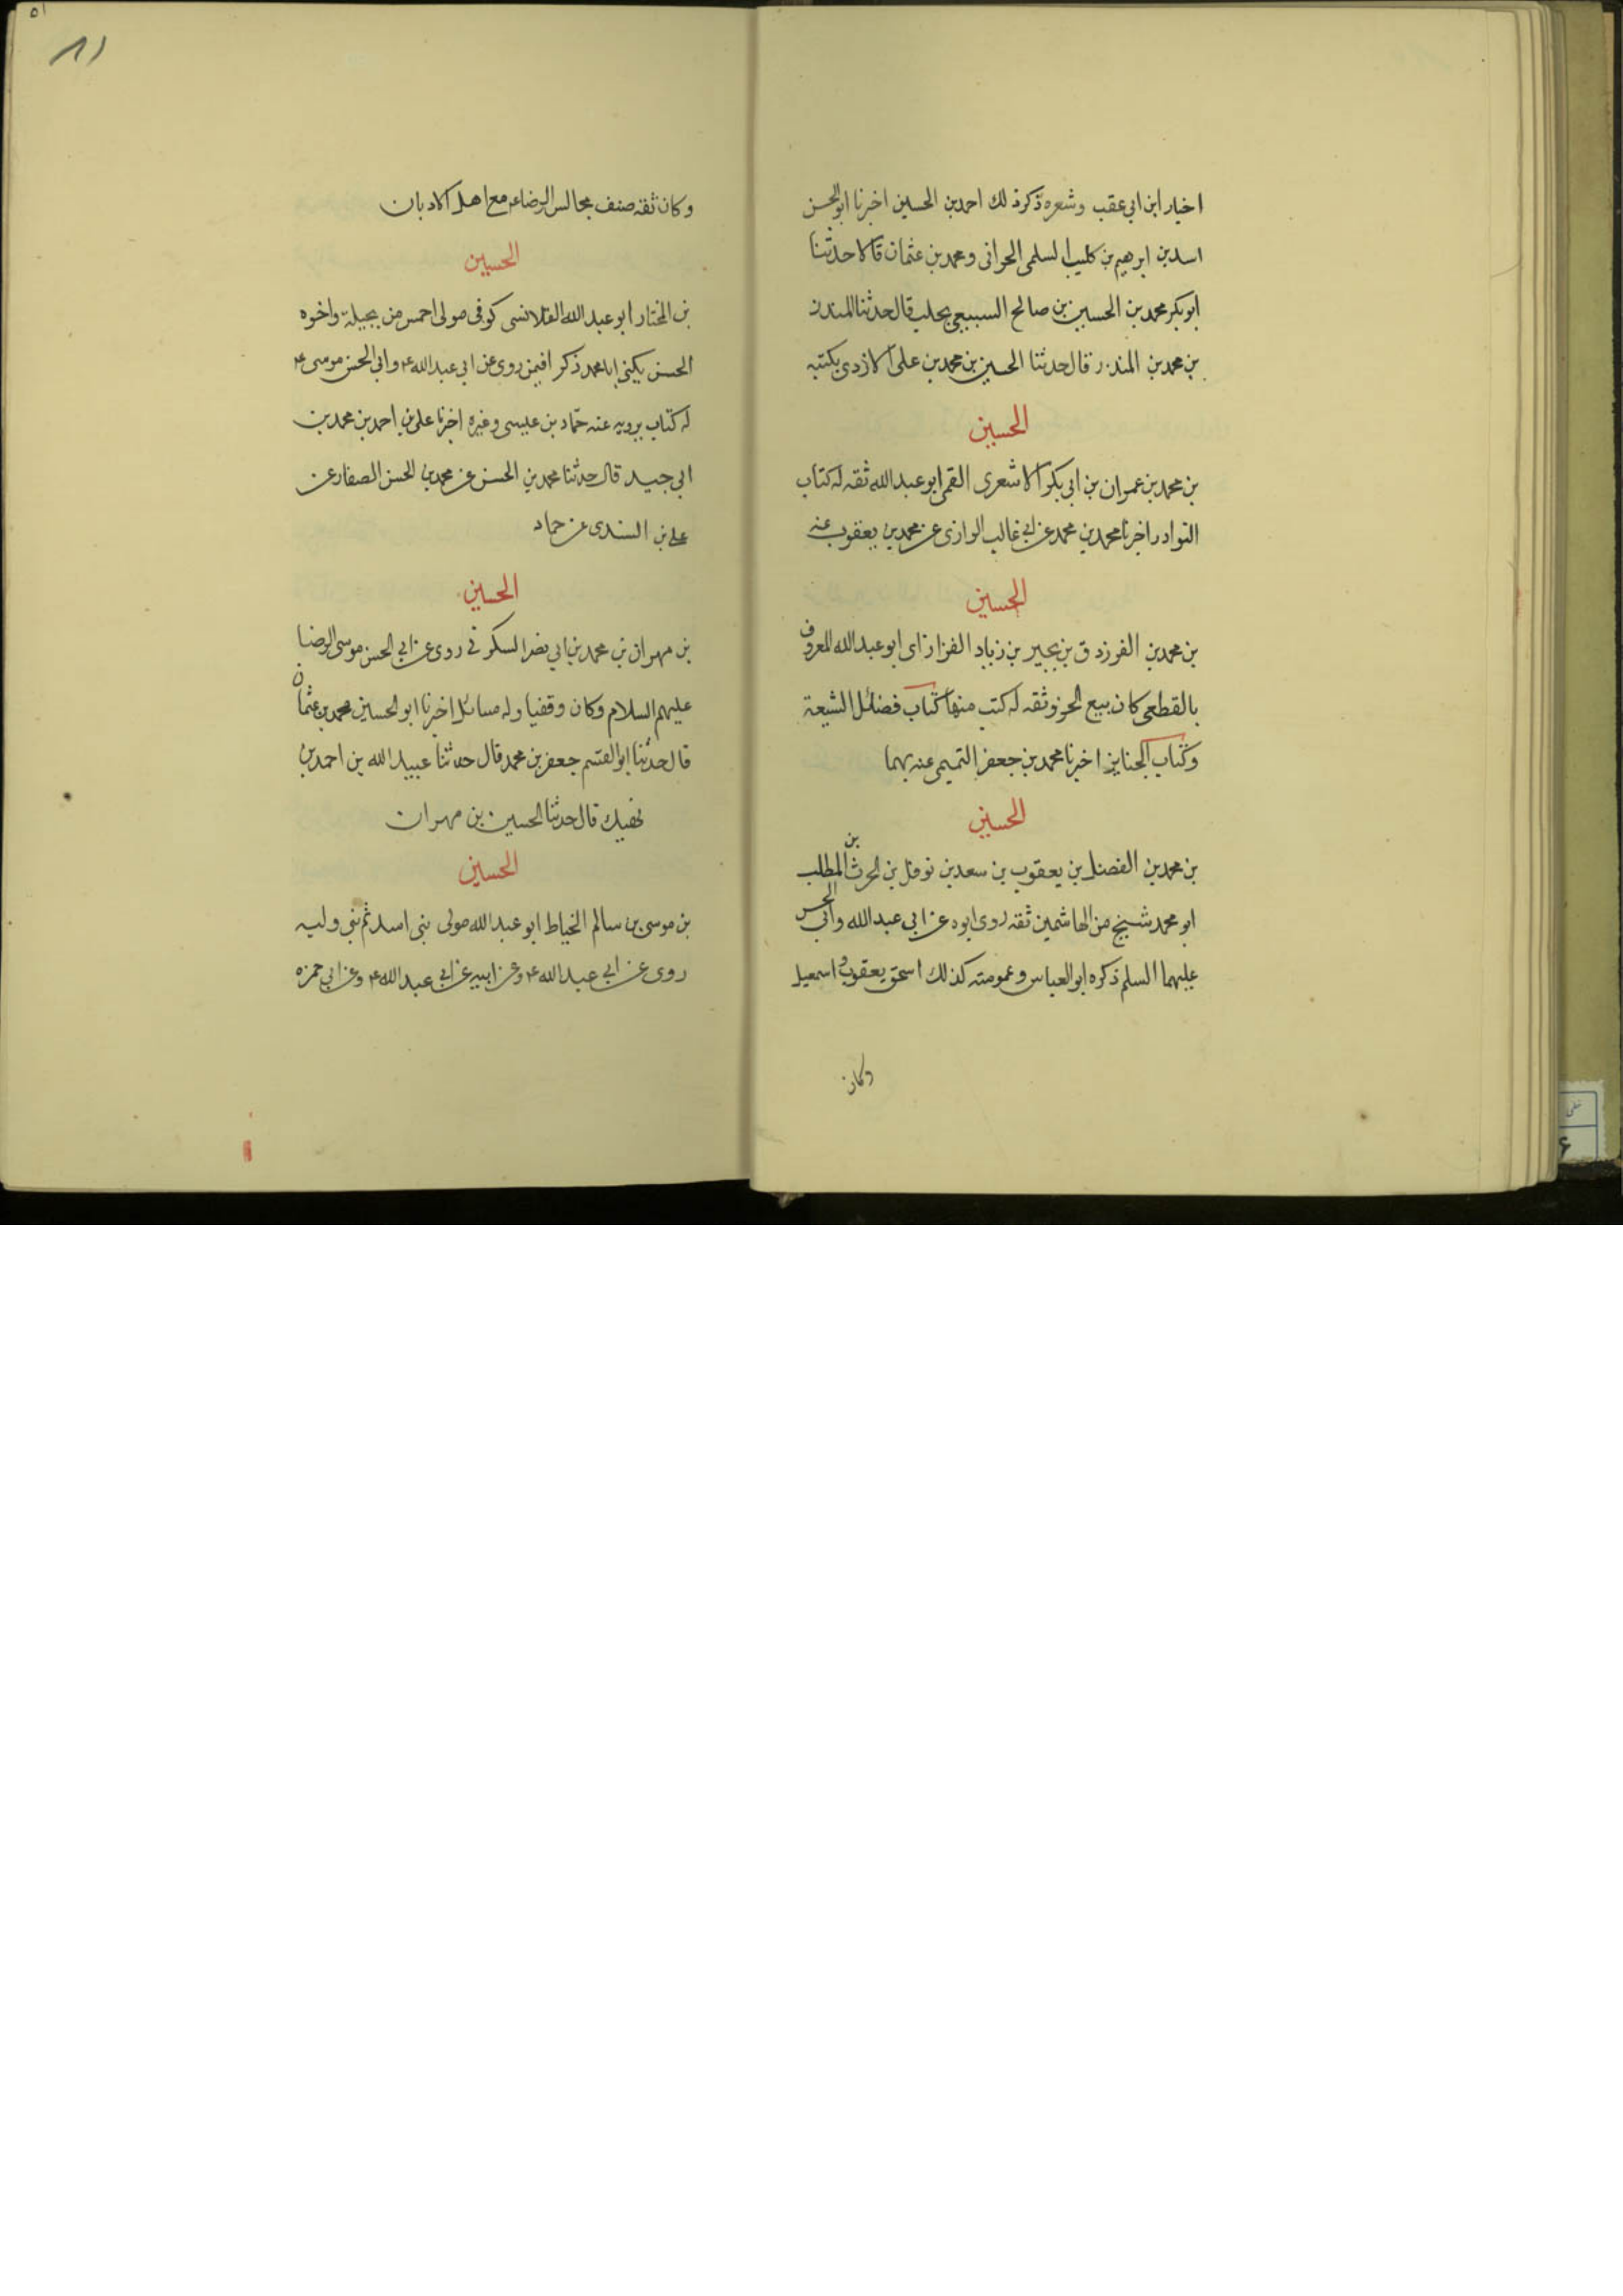 اخبار ابن ابي عقب وشعره ذكر ذلك احمد بن الحسين اخبرنا ابو الحسن
اسد بن ابرهيم بن كليب السلمي الحراني ومحمد بن عثمان قالا حدثنا
ابو بكر محمد بن الحسين بن صالح السبيعي بحلب قال حدثنا المنذر
بن محمد بن المنذر قال حدثنا الحسين بن محمد بن علي الازدي بكتبه
الحسين
بن محمد بن عمران بن ابي بكر الاشعري القمي ابو عبد الله ثقه له كتاب
النوادر اخبرنا محمد بن محمد عن ابي غالب الرازي عن محمد بن يعقوب عنه
الحسين
بن محمد بن الفرزدق بن بجير بن زياد الفزاراى ابو عبد الله المعروف
بالقطعي كان يبيع الخز وثقه له كتب منها كتاب فضائل الشيعة
وكتاب الجنايز اخبرنا محمد بن جعفر التميمي عنه بهما
الحسين
بن محمد بن الفضل بن يعقوب بن سعد بن نوفل بن الحرث بن المطلب
ابو محمد شيخ من الهاشمين ثقه روى ابوه عن ابي عبد الله وابي الحسن
عليهما السلم ذكره ابو العباس وعمومته كذلك اسحق يعقوب و اسمعيل
وكان
٥١
وكان ثقه صنف مجالس الرضا ع مع اهل الاديان
الحسين
بن المختار ابو عبد الله القلانسي كوفي مولى احمس من بجيلة واخوه
الحسن يكنى ابا محمد ذكر افيمن روى عن ابي عبد الله ع وابي الحسن موسى ع
له كتاب يرويه عنه حمّاد بن عيسى وغيره اخبرنا علي بن احمد بن محمد بن
ابي جيد قال حدثنا محمد بن الحسن عن محمد بن الحسن الصفار عن
علي بن السندي عن حماد
الحسين
بن مهران بن محمد بن ابي نصر السكوني روى عن ابي الحسن موسى الرضا
عليهم السلام وكان وقفيا وله مسائل اخبرنا ابو الحسين محمد بن عثمان
قال حدثنا ابو القسم جعفر بن محمد قال حدثنا عبيد الله بن احمد بن
نهيك قال حدثنا الحسين بن مهران
الحسين
بن موسى بن سالم الخياط ابو عبد الله مولى بني اسد ثم بني وليه
روى عن ابي عبد الله ع وعن ابيه عن ابي عبد الله ع وعن ابي حمزه